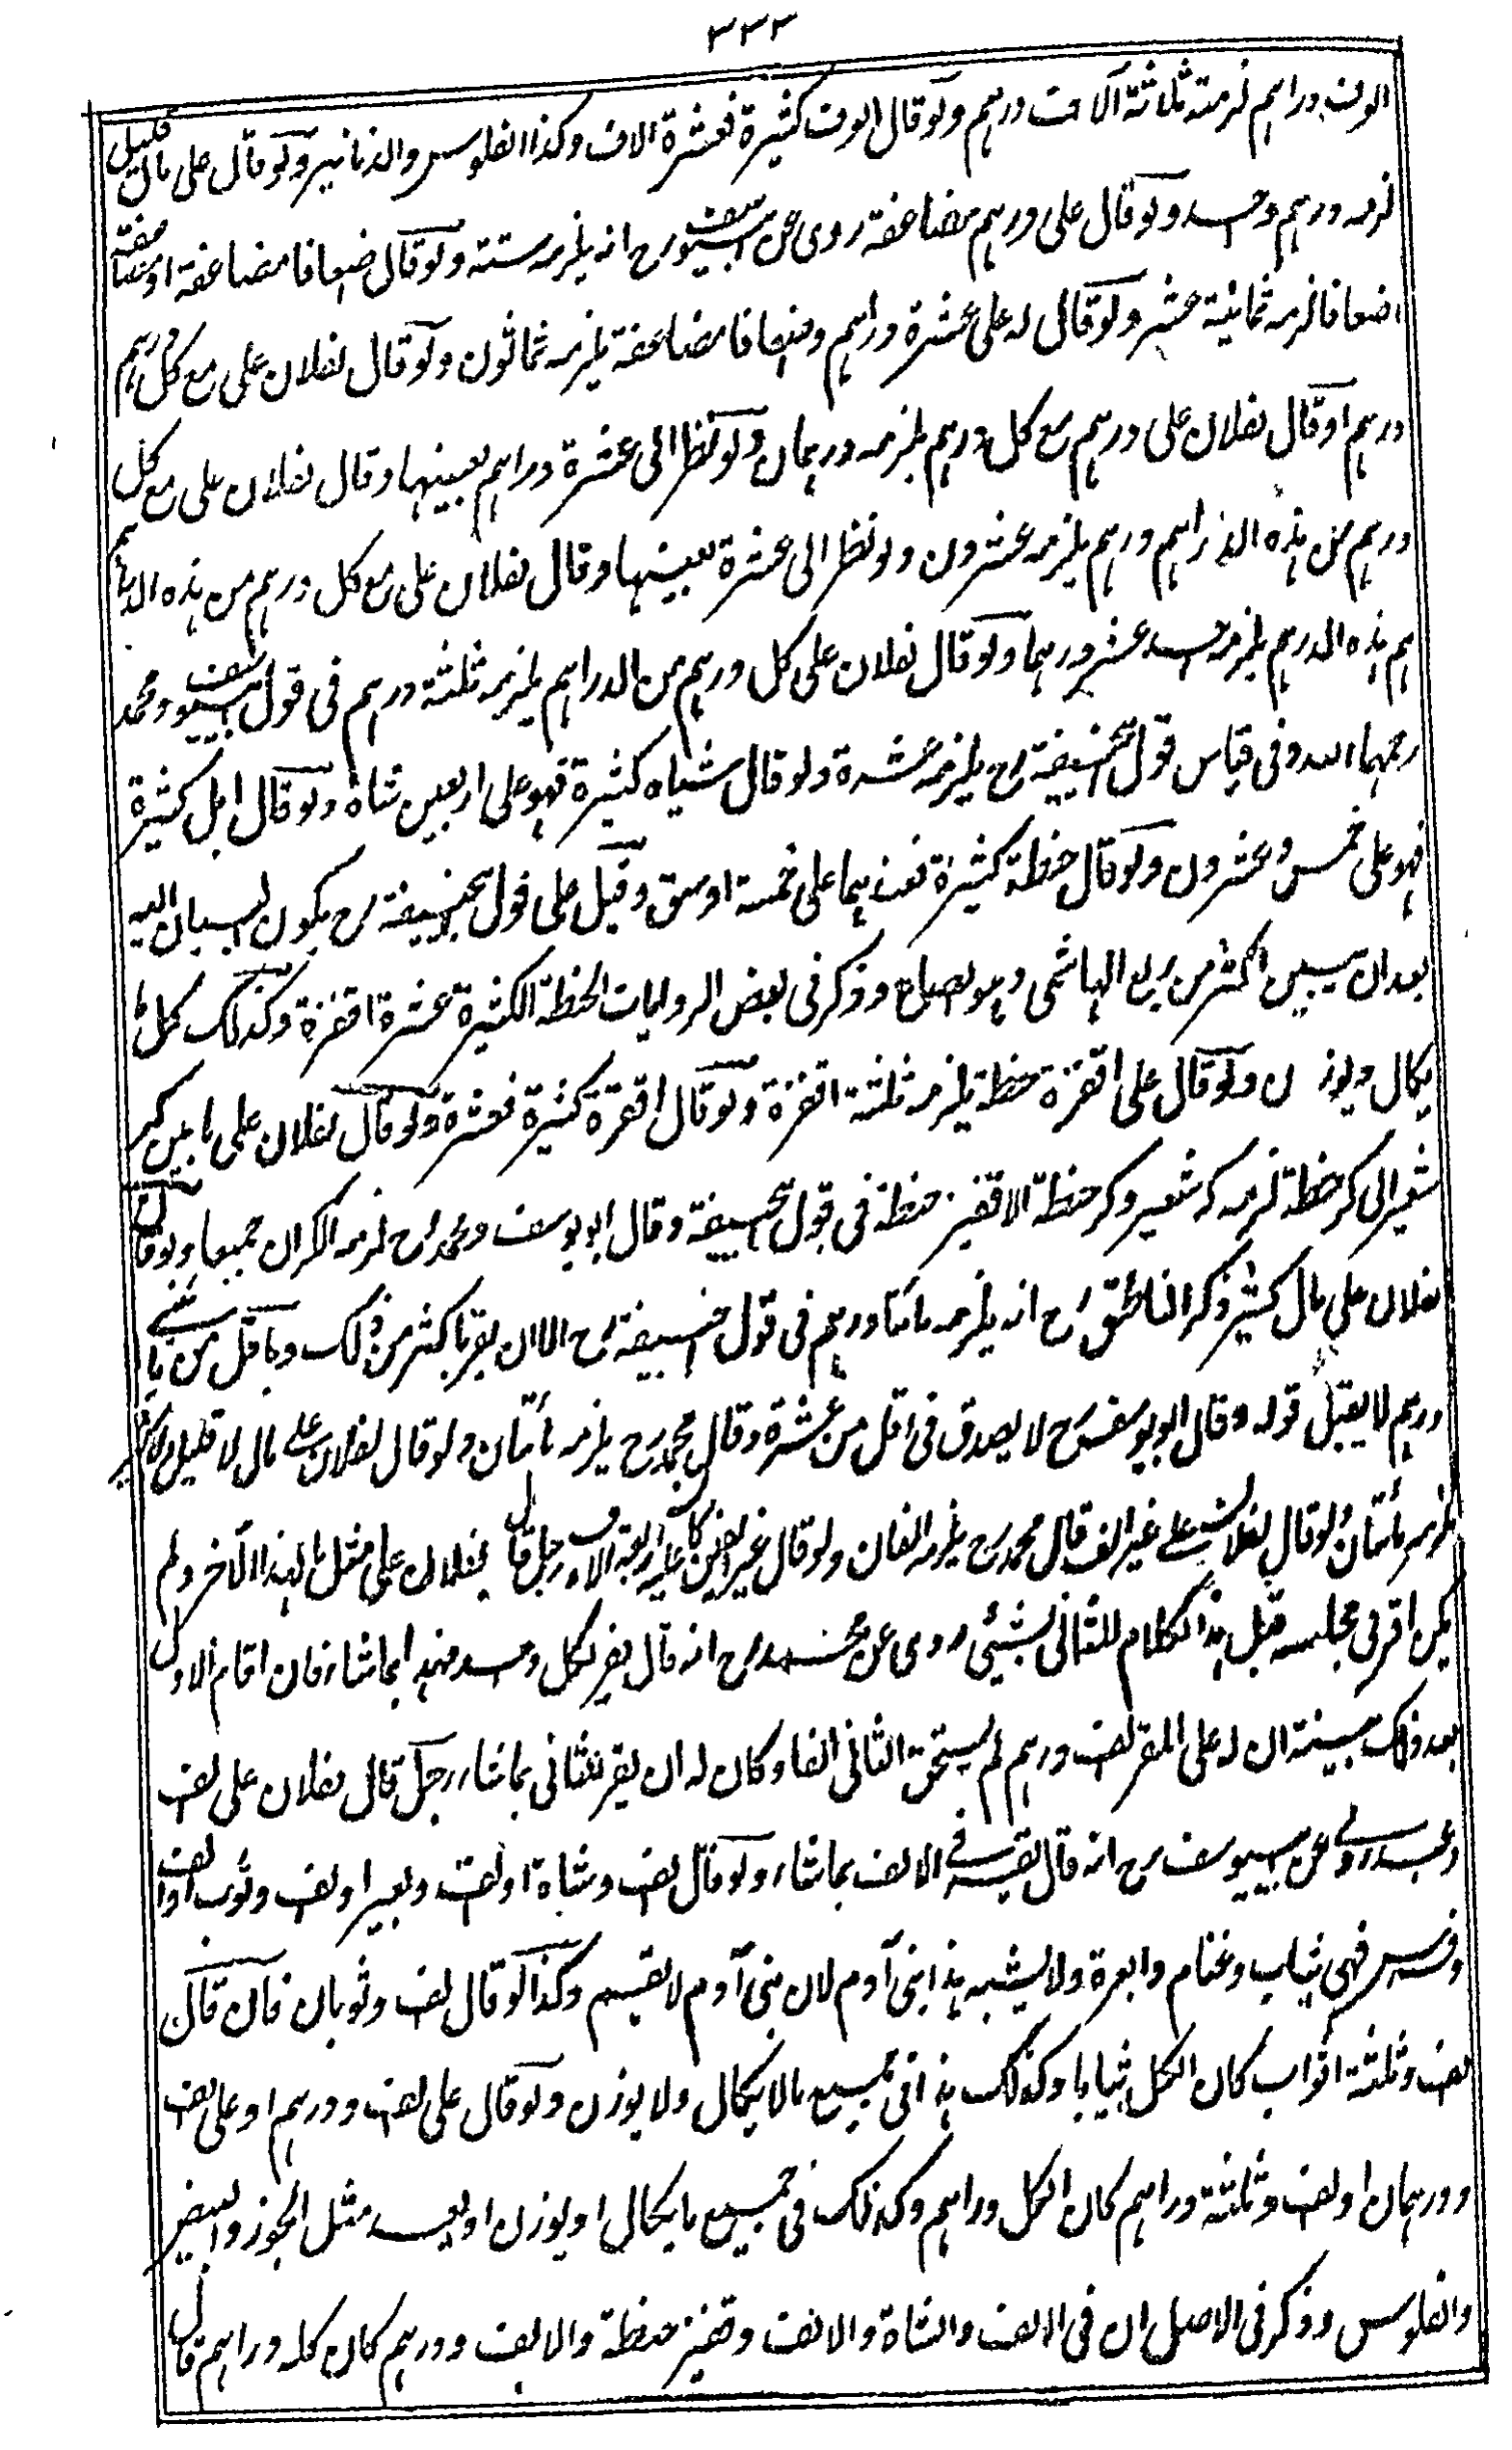 ٣٣٣
الوف دراهم لزمته ثلاثة آلاف درهم ولو قال الوف كثيرة فعشرة الاف وكذا الفلوس والدنانير ولو قال على مال قليل
لزمه درهم واحد ولو قال على درهم مضاعفة روى عن ابى يوسف رح انه يلزمه ستة ولو قال اضعافا مضاعفة او مضاعفة
اضعافا لزمه ثمانية عشر ولو قال له على عشرة دراهم واضعافا مضاعفة يلزمه ثمانون ولو قال لفلان على مع كل درهم
درهم او قال لفلان على درهم مع كل درهم يلزمه درهمان ولو نظر الى عشرة دراهم بعينها وقال لفلان على مع كل
درهم من هذه الدراهم درهم يلزمه عشرون ولو نظر الى عشرة بعينها وقال لفلان على مع كل درهم من هذه الدراهم
هذه الدرهم يلزمه احد عشر درهما ولو قال لفلان على كل درهم من الدراهم يلزمه ثلثة درهم فى قول ابى يوسف ومحمد
رحمهما الله وفى قياس قول ابى حنيفة رح يلزمه عشرة ولو قال شياه كثيرة فهو على اربعين شاة ولو قال ابل كثيرة
فهو على خمس وعشرون ولو قال حنطة كثيرة فعندهما على خمسة اوسق وقيل على قول ابى حنيفة رح يكون البيان اليه
بعد ان يبين اكثر من ربع الهاشمى وهو الصاع وذكر فى بعض الروايات الحنطة الكثيرة عشرة اقفزة وكذلك كل ما
يكال ويوزن ولو قال على اقفزة حنطة يلزمه ثلثة اقفزة ولو قال اقفزة كثيرة فعشرة ولو قال لفلان على ما بين كر
شعير الى كر حنطة لزمه كر شعير وكر حنطة الا قفيز حنطة فى قول ابى حنيفة وقال ابو يوسف ومحمد رح لزمه الكران جميعا ولو قال
لفلان على مال كثير ذكر الناطقى رح انه يلزمه مائتا درهم فى قول ابى حنيفة رح الا ان يقر باكثر من ذلك وباقل من مائتى
درهم لا يقبل قوله وقال ابو يوسف رح لا يصدق فى اقل من عشرة وقال محمد رح يلزمه مأتان ولو قال لفلان على مال لا قليل ولا كثير
يلزمه مأتان ولو قال لفلان على غير الف قال محمد رح يلزمه الفان ولو قال غير الفين كان عليه اربعة الاف رجل قال لفلان على مثل ما لهذا الآخر ولم
يكن اقر فى مجلسه قبل هذا الكلام للثانى بشيئ روى عن محمد رح انه قال يقر لكل واحد منهما بما شاء فان اقام الاول
بعد ذلك بينة ان له على المقر الف درهم لم يستحق الثانى الفا وكان له ان يقر للثانى بما شاء رجل قال لفلان على الف
وعبد روى عن ابى يوسف رح انه قال يقر فى الالف بما شاء ولو قال الف وشاة او الف وبعير او الف وثوب او الف
وفرس فهى ثياب وغنام وابعرة ولا يشبه هذا بنى آدم لان بنى آدم لا يقسم وكذا لو قال الف وثوبان فان قال
الف وثلثة اثواب كان الكل ثيابا وكذلك هذا فى جميع ما لا يكال ولا يوزن ولو قال على الف ودرهم او على الف
ودرهمان او الف وثلثة دراهم كان الكل دراهم وكذلك فى جميع ما يكال او يوزن او يعد مثل الجوز والبيض
والفلوس وذكر فى الاصل ان فى الالف والشاة والالف وقفيز حنطة والالف ودرهم كان كله دراهم قال